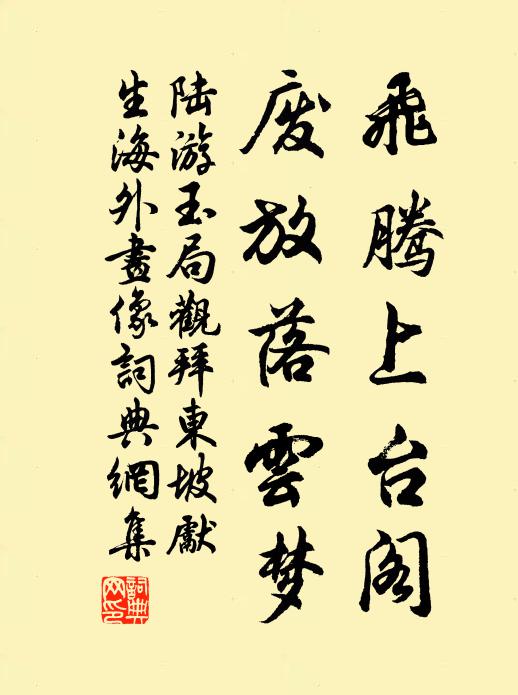 飛騰上台阁
废放落雲梦
陆游玉局觀拜東坡獻
生海外畫像詞典網集
詞典网印